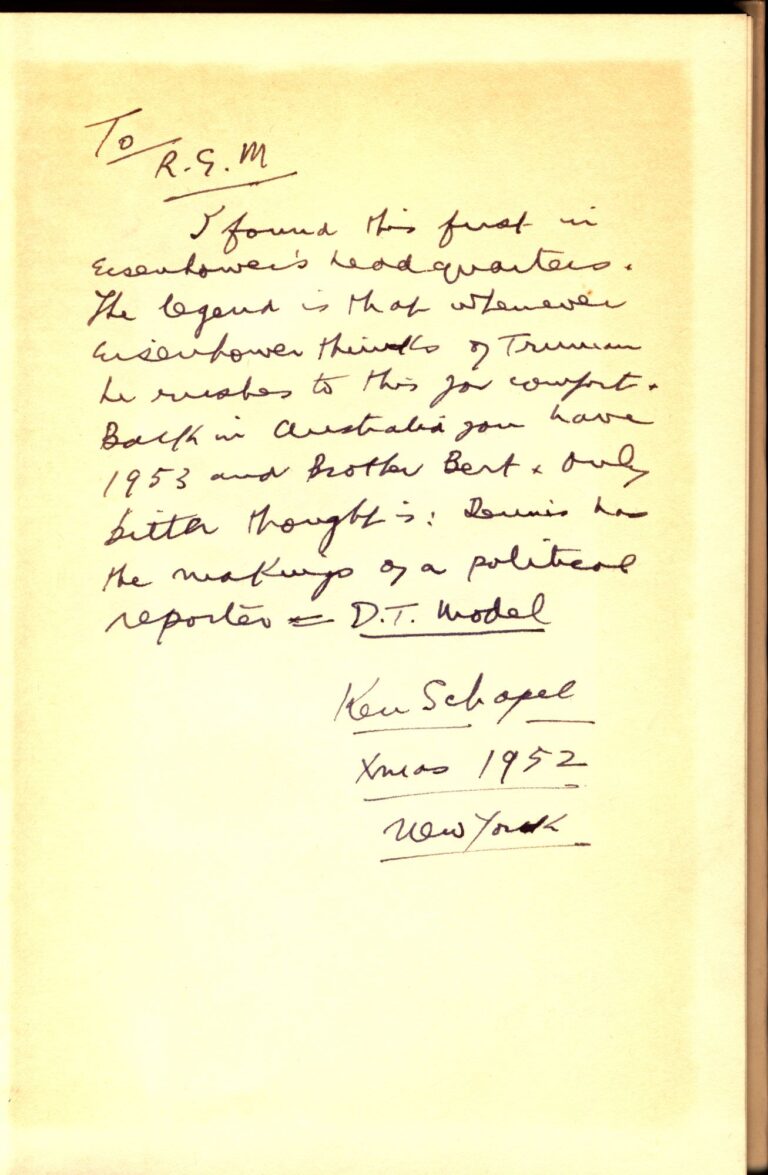 To
R.G.M
I found this first in
Eisenhower's headquarters.
The legend is that whenever
Eisenhower thinks of Truman
he rushes to this for comfort.
Back in Australia you have
1953 and Brother Bert. Only
bitter thought is: Dennis has
the makings of a political
reporter = D.T. Model
Ken Schapel
Xmas 1952
New York